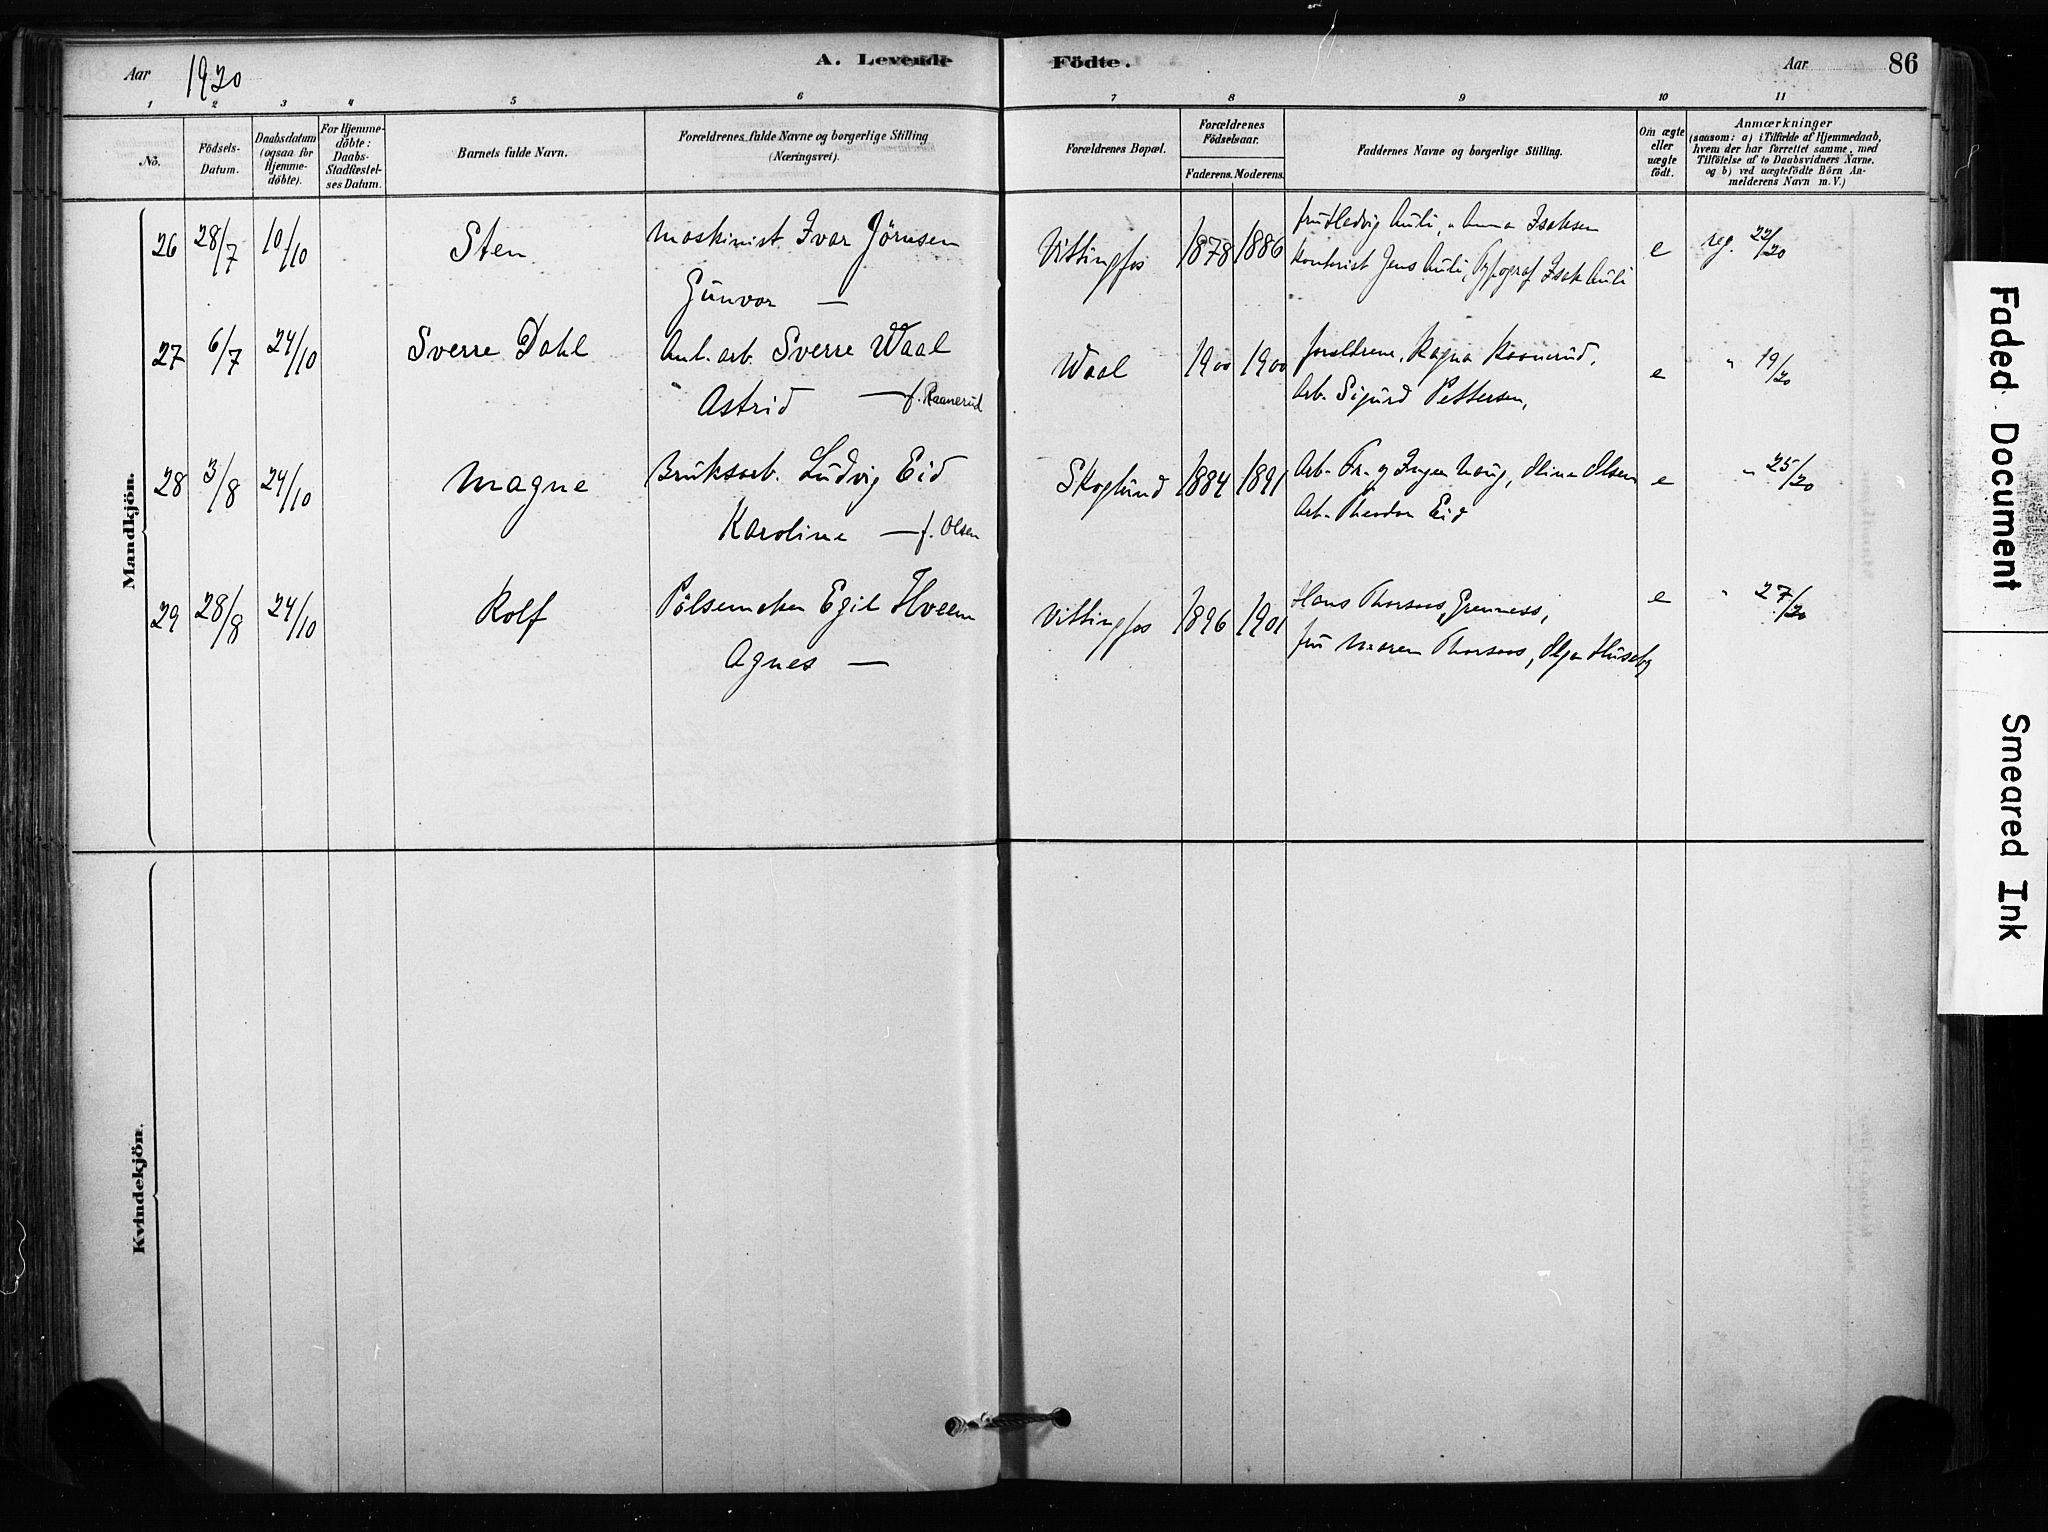 Aar 1920
A. Levende Födte.
Aar 86
1 2 3 4 5 6 7 8 9 10 11
No.
Födsels-Datum.
Daabsdatum (ogsaa for Hjemme-döbte).
For Hjemme-döbte: Daabs-Stadfæstel-ses Datum.
Barnets fulde Navn.
Forældrenes fulde Navne og borgerlige Stilling (Næringsvei).
Forældrenes Bopæl.
Forældrenes Födselsaar.
Faderens. Moderens.
Faddernes Navne og borgerlige Stilling.
Om ægte eller uægte födt.
Anmærkninger
(saasom: a) i Tilfælde af Hjemmedaab,
hvem der har forrettet samme, med
Tilföielse af to Daabsvidners Navne.
og b) ved uægtefödte Börn An-
melderens Navn m. V.)
Mandkjön.
26 28/7 10/10 Sten Maskinist Ivar Jörnsen Vittingfos 1878 1886 fru Hedvig Auli, " Anna Isaksen e reg. 22/20
Gunvor — Kontorist Jens Auli, Typograf Isak Auli
27 6/7 24/10 Sverre Dahl arb. Sverre Waal Waal 1900 1900 foreldrene, Ragna Raanerud, e " 19/20
Astrid — f. Raanerud Arb. Sigurd Pettersen,
28 3/8 24/10 Magne Bruksarb. Ludvig Eid Skoglund 1884 1891 Arb. Fr. og Inga Haug, Olsen e " 25/20
Karoline — f. Olsen Arb. Theodor Eid
29 28/8 24/10 Rolf Pölsemaker Egil Hveem Vittingfos 1896 1901 Hans Thorsaas, Grenness, e " 27/20
Agnes — fru Maren Thorsaas, Olga Huseby
Kvindekjön.
Faded Document
Smeared Ink